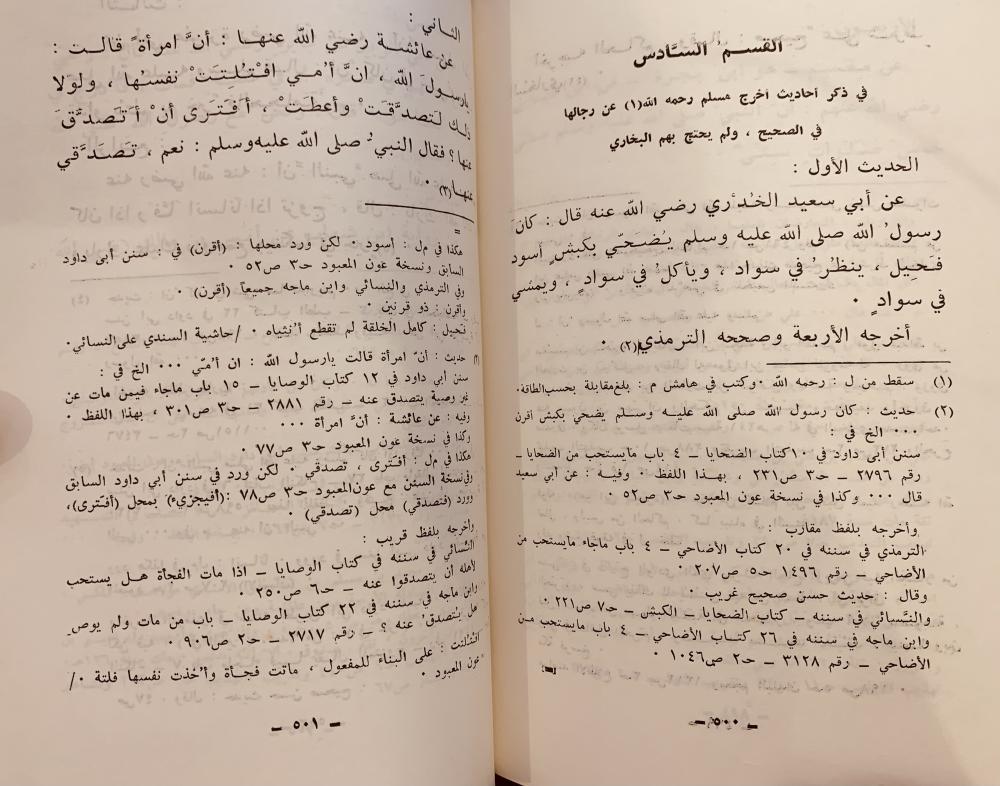 القسم السَّادس
في ذكر أحاديث أخرج مسلم رحمه الله(١) عن رجالها
في الصحيح ، ولم يحتج بهم البخاري
الحديث الأول :
عن أبي سعيد الخُدْري رضي الله عنه قال : كانَ
رسولُ الله صلى الله عليه وسلم يُضَحّي بكبشٍ أسود
فَحِيل ، ينظُرُ في سواد ، ويأكلُ في سوادٍ ، ويمشي
في سوادٍ ٠
أخرجه الأربعة وصححه الترمذي(٢) ٠
(١) سقط من ل : رحمه الله ٠ وكتب في هامش م : بلغ مقابلة بحسب الطاقة٠
(٢) حديث : كان رسول الله صلى الله عليه وسلم يضحي بكبش أقرن
٠٠٠ الخ في :
سنن أبى داود في ١٠ كتاب الضحايا ــ ٤ باب مايستحب من الضحايا ــ
رقم ٢٧٩٦ ــ ح٣ ص٢٣١ ، بهذا اللفظ ٠ وفيه : عن أبي سعيد
قال ٠٠٠ وكذا في نسخة عون المعبود ح٣ ص٥٢ ٠
وأخرجه بلفظ مقارب :
الترمذي في سننه في ٢٠ كتاب الأضاحي ــ ٤ باب ماجاء مايستحب من
الأضاحي ــ رقم ١٤٩٦ ح٥ ص٢٠٧ ٠
وقال : حديث حسن صحيح غريب ٠
والنَّسائي في سننه ــ كتاب الضحايا ــ الكبش ــ ح٧ ص٢٢١ ٠
وابن ماجه في سننه في ٢٦ كتاب الأضاحي ــ ٤ باب مايستحب من
الأضاحي ــ رقم ٣١٢٨ ــ ح٢ ص١٠٤٦ ٠
=
ــ ٥٠٠ ــ
الثاني :
عن عائشة رضي الله عنها : أنَّ امرأةً قالت :
يارسول الله ، انَّ أُمي افْتُلِتَتْ نفسُها ، ولولا
ذلك لَتصدَّقَتْ وأعطَتْ ، أَفَتَرى أنْ أَتَصدَّقَ
عنها؟ فقال النبيُّ صلى الله عليه وسلم : نعم ، تَصَدَّقي
عنها(٣) ٠
=
هكذا في م ل : أسود ٠ لكن ورد محلها : (أقرن) في : سنن أبى داود
السابق ونسخة عون المعبود ح٣ ص٥٢ ٠
وفي الترمذي والنسائي وابن ماجه جميعاً (أقرن) ٠
وأقرن : ذو قرنين ٠
فحيل : كامل الخلقة لم تقطع أُنثياه ٠ /حاشية السندي على النسائي٠
حديث : أنّ امرأة قالت يارسول الله : ان أُمّي ٠٠٠ الخ في :
سنن أبي داود في ١٢ كتاب الوصايا ــ ١٥ باب ماجاء فيمن مات عن
غير وصية يتصدق عنه ــ رقم ٢٨٨١ ــ ح٣ ص٣٠١ ، بهذا اللفظ ٠
وفيه : عن عائشة : أنَّ امرأة ٠٠٠
وكذا في نسخة عون المعبود ح٣ ص٧٧ ٠
هكذا في م ل : أفترى ، تصدقي ٠ لكن ورد في سنن أبي داود السابق
وفي نسخة السنن مع عون المعبود ح٣ ص٧٨ : (أفيجزيء) بمحل (أفترى)،
وورد (فتصدقي) محل (تصدقي) ٠
وأخرجه بلفظ قريب :
النَّسائي في سننه في كتاب الوصايا ــ اذا مات الفجأة هل يستحب
لأهله أن يتصدقوا عنه ــ ح٦ ص٢٥٠ ٠
وابن ماجه في سننه في ٢٢ كتاب الوصايا ــ باب من مات ولم يوص
هل يُتصدق عنه ؟ ــ رقم ٢٧١٧ ــ ح٢ ص٩٠٦ ٠
افتُلتت : على البناء للمفعول ، ماتت فجأة وأُخذت نفسها فلتة ٠/
عون المعبود ٠
ــ ٥٠١ ــ